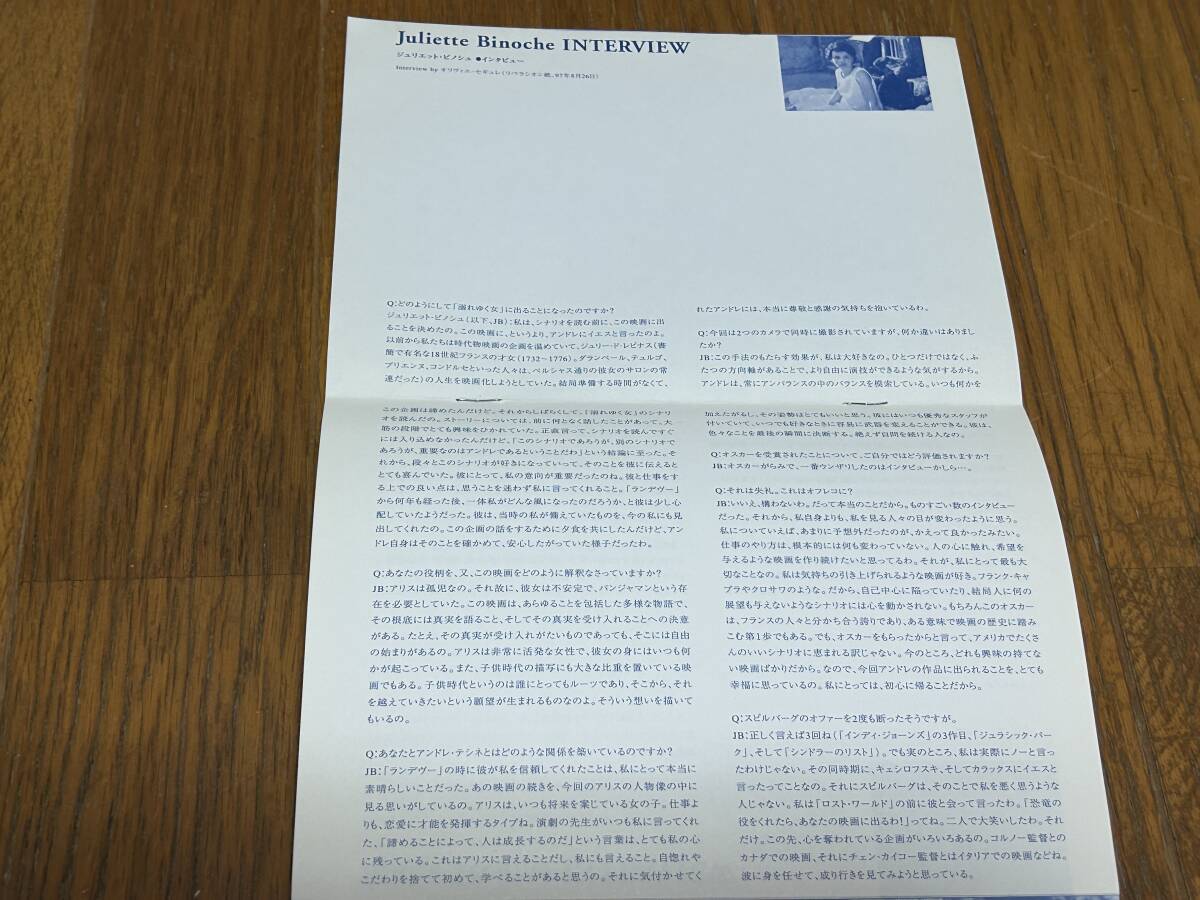 Juliette Binoche INTERVIEW
ジュリエット・ビノシュ ●インタビュー
Interview by オリヴィエ・セギュレ(リベラシオン紙、97年8月26日)
Q:どのようにして「溺れゆく女」に出ることになったのですか?
ジュリエット・ビノシュ(以下、JB):私は、シナリオを読む前に、この映画に出
ることを決めたの。この映画に、というより、アンドレにイエスと言ったのよ。
以前から私たちは時代物映画の企画を温めていて、ジュリー・ド・レピナス(書
簡で有名な18世紀フランスの才女(1732~1776)。ダランベール、テュルゴ、
ブリエンヌ、コンドルセといった人々は、ベルシャス通りの彼女のサロンの常
連だった)の人生を映画化しようとしていた。結局準備する時間がなくて、
この企画は諦めたんだけど。それからしばらくして、「溺れゆく女」のシナリ
オを読んだの。ストーリーについては、前に何となく話したことがあって、大
筋の段階でとても興味をひかれていた。正直言って、シナリオを読んですぐ
には入り込めなかったんだけど、「このシナリオであろうが、別のシナリオで
あろうが、重要なのはアンドレであるということだわ」という結論に至った。そ
れから、段々とこのシナリオが好きになっていって、そのことを彼に伝えると
とても喜んでいた。彼にとって、私の意向が重要だったのね。彼と仕事をす
る上での良い点は、思うことを迷わず私に言ってくれること。「ランデヴー」
から何年も経った後、一体私がどんな風になったのだろうか、と彼は少し心
配していたようだった。彼は、当時の私が備えていたものを、今の私にも見
出してくれたの。この企画の話をするために夕食を共にしたんだけど、アン
ドレ自身はそのことを確かめて、安心したがっていた様子だったわ。
Q:あなたの役柄を、又、この映画をどのように解釈なさっていますか?
JB:アリスは孤児なの。それ故に、彼女は不安定で、バンジャマンという存
在を必要としていた。この映画は、あらゆることを包括した多様な物語で、
その根底には真実を語ること、そしてその真実を受け入れることへの決意
がある。たとえ、その真実が受け入れがたいものであっても、そこには自由
の始まりがあるの。アリスは非常に活発な女性で、彼女の身にはいつも何
かが起こっている。また、子供時代の描写にも大きな比重を置いている映
画でもある。子供時代というのは誰にとってもルーツであり、そこから、それ
を越えていきたいという願望が生まれるものなのよ。そういう想いを描いて
もいるの。
Q:あなたとアンドレ・テシネとはどのような関係を築いているのですか?
JB:「ランデヴー」の時に彼が私を信頼してくれたことは、私にとって本当に
素晴らしいことだった。あの映画の続きを、今回のアリスの人物像の中に
見る思いがしているの。アリスは、いつも将来を案じている女の子。仕事よ
りも、恋愛に才能を発揮するタイプね。演劇の先生がいつも私に言ってくれ
た、「諦めることによって、人は成長するのだ」という言葉は、とても私の心
に残っている。これはアリスに言えることだし、私にも言えること。自惚れや
こだわりを捨てて初めて、学べることがあると思うの。それに気付かせてく
れたアンドレには、本当に尊敬と感謝の気持ちを抱いているわ。
Q:今回は2つのカメラで同時に撮影されていますが、何か違いはありまし
たか?
JB:この手法のもたらす効果が、私は大好きなの。ひとつだけではなく、ふ
たつの方向軸があることで、より自由に演技ができるような気がするから。
アンドレは、常にアンバランスの中のバランスを模索している。いつも何かを
加えたがるし、その姿勢はとてもいいと思う。彼にはいつも優秀なスタッフが
付いていて、いつでも好きなときに容易に武器を変えることができる。彼は、
色々なことを最後の瞬間に決断する。絶えず自問を続ける人なの。
Q:オスカーを受賞されたことについて、ご自分ではどう評価されますか?
JB:オスカーがらみで、一番ウンザリしたのはインタビューかしら…。
Q:それは失礼。これはオフレコに?
JB:いいえ、構わないわ。だって本当のことだから。ものすごい数のインタビュー
だった。それから、私自身よりも、私を見る人々の目が変わったように思う。
私についていえば、あまりに予想外だったのが、かえって良かったみたい。
仕事のやり方は、根本的には何も変わっていない。人の心に触れ、希望を
与えるような映画を作り続けたいと思ってるわ。それが、私にとって最も大
切なことなの。私は気持ちの引き上げられるような映画が好き。フランク・キャ
プラやクロサワのような。だから、自己中心に陥っていたり、結局人に何の
展望も与えないようなシナリオには心を動かされない。もちろんこのオスカー
は、フランスの人々と分かち合う誇りであり、ある意味で映画の歴史に踏み
こむ第1歩でもある。でも、オスカーをもらったからと言って、アメリカでたくさ
んのいいシナリオに恵まれる訳じゃない。今のところ、どれも興味の持てな
い映画ばかりだから。なので、今回アンドレの作品に出られることを、とても
幸福に思っているの。私にとっては、初心に帰ることだから。
Q:スピルバーグのオファーを2度も断ったそうですが。
JB:正しく言えば3回ね(「インディ・ジョーンズ」の3作目、「ジュラシック・パー
ク」、そして「シンドラーのリスト」)。でも実のところ、私は実際にノーと言っ
たわけじゃない。その同時期に、キェシロフスキ、そしてカラックスにイエスと
言ったってことなの。それにスピルバーグは、そのことで私を悪く思うような
人じゃない。私は「ロスト・ワールド」の前に彼と会って言ったわ。「恐竜の
役をくれたら、あなたの映画に出るわ!」ってね。二人で大笑いしたわ。それ
だけ。この先、心を奪われている企画がいろいろあるの。コルノー監督との
カナダでの映画、それにチェン・カイコー監督とはイタリアでの映画などね。
波に身を任せて、成り行きを見てみようと思っている。